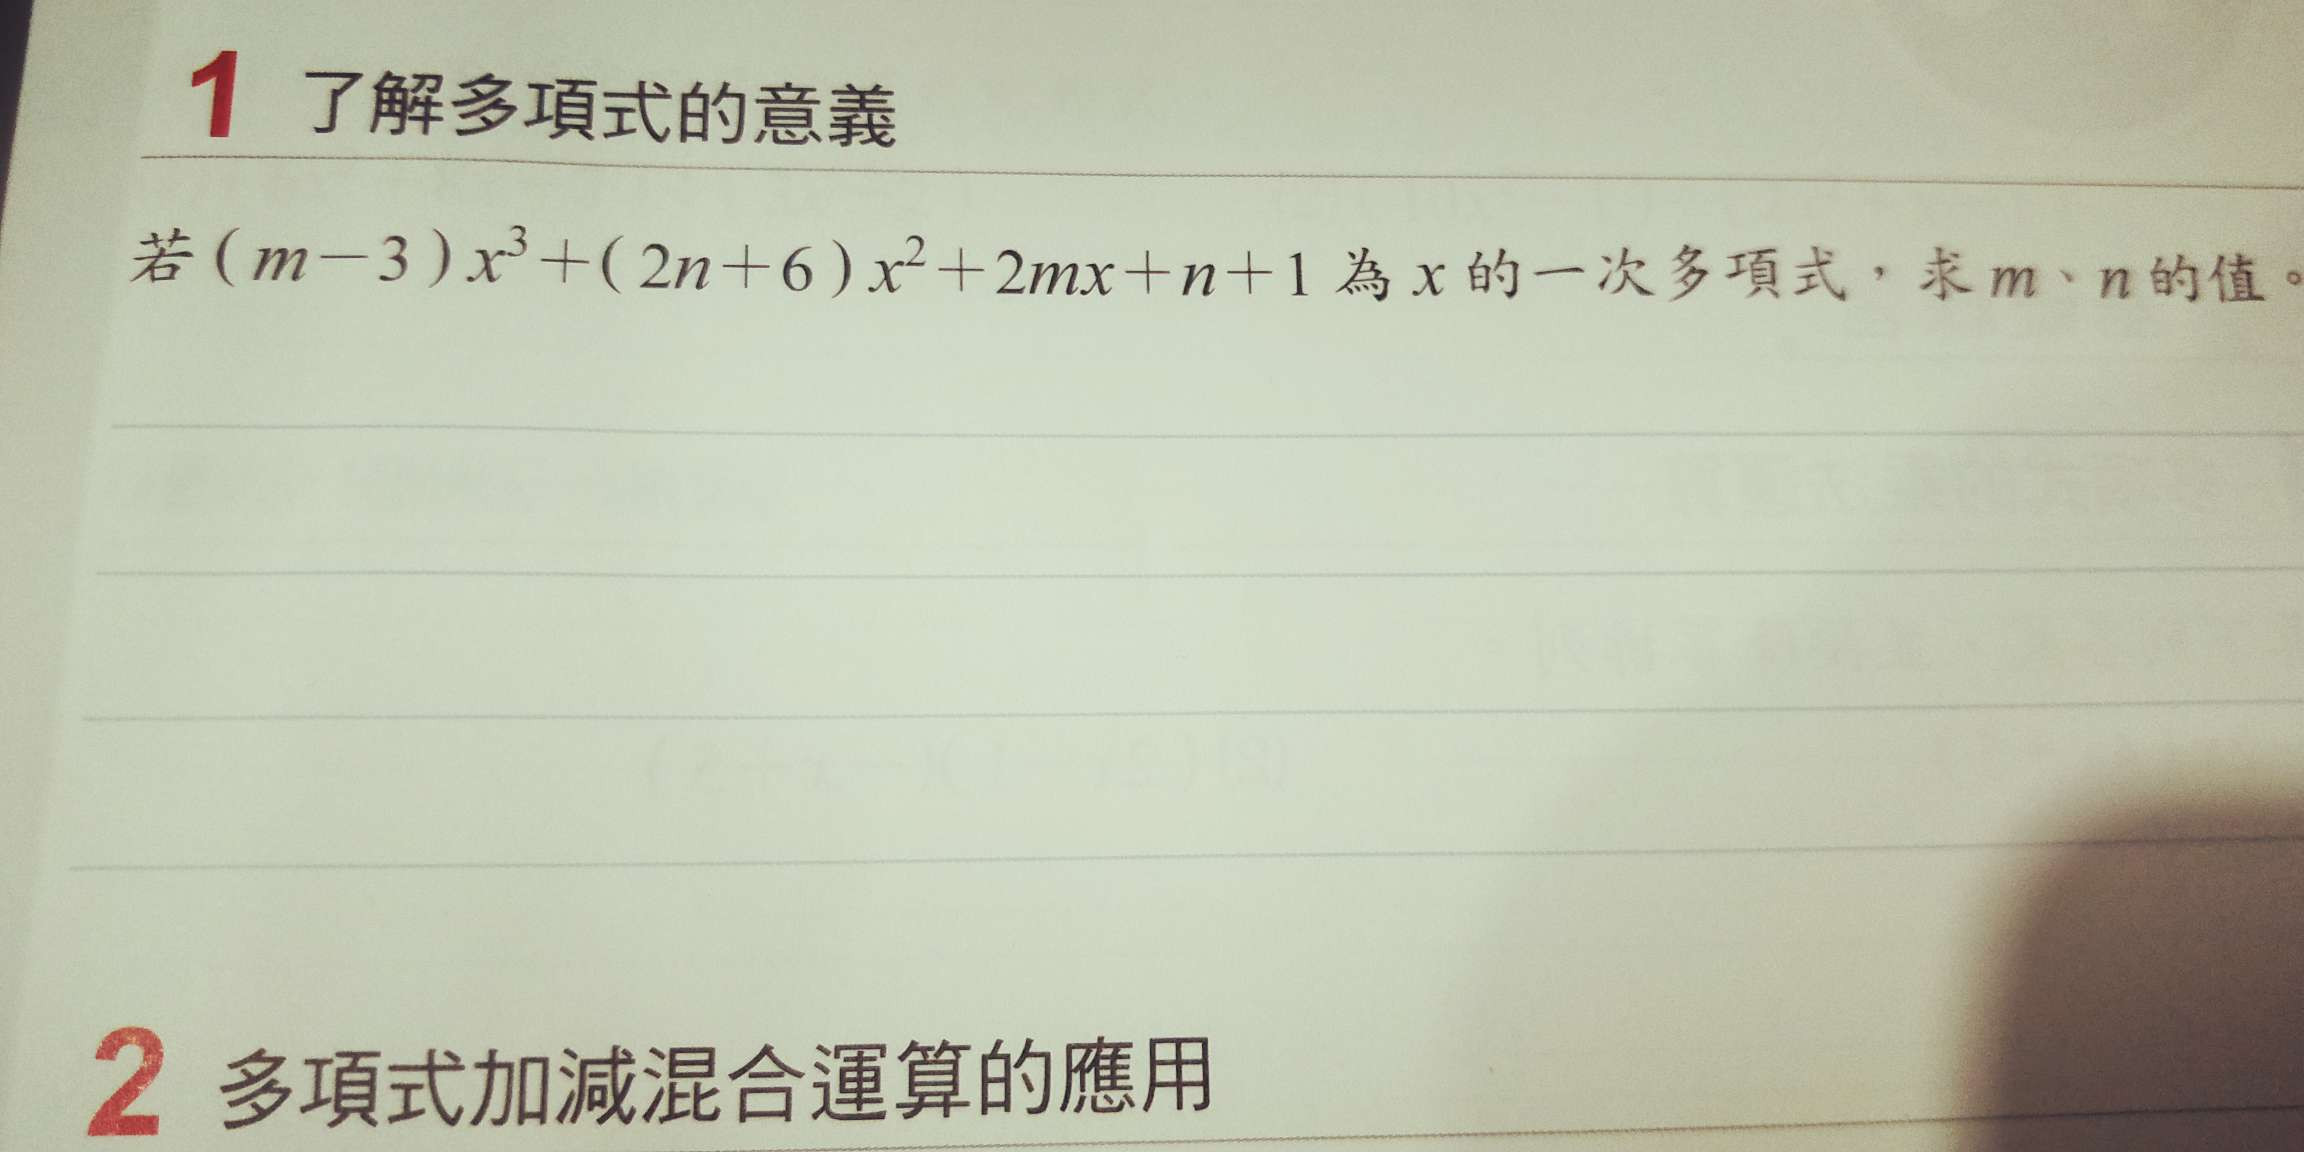 1 了解多項式的意義
若(m－3)x³＋(2n＋6)x²＋2mx＋n＋1為x的一次多項式，求m、n的值。
2 多項式加減混合運算的應用